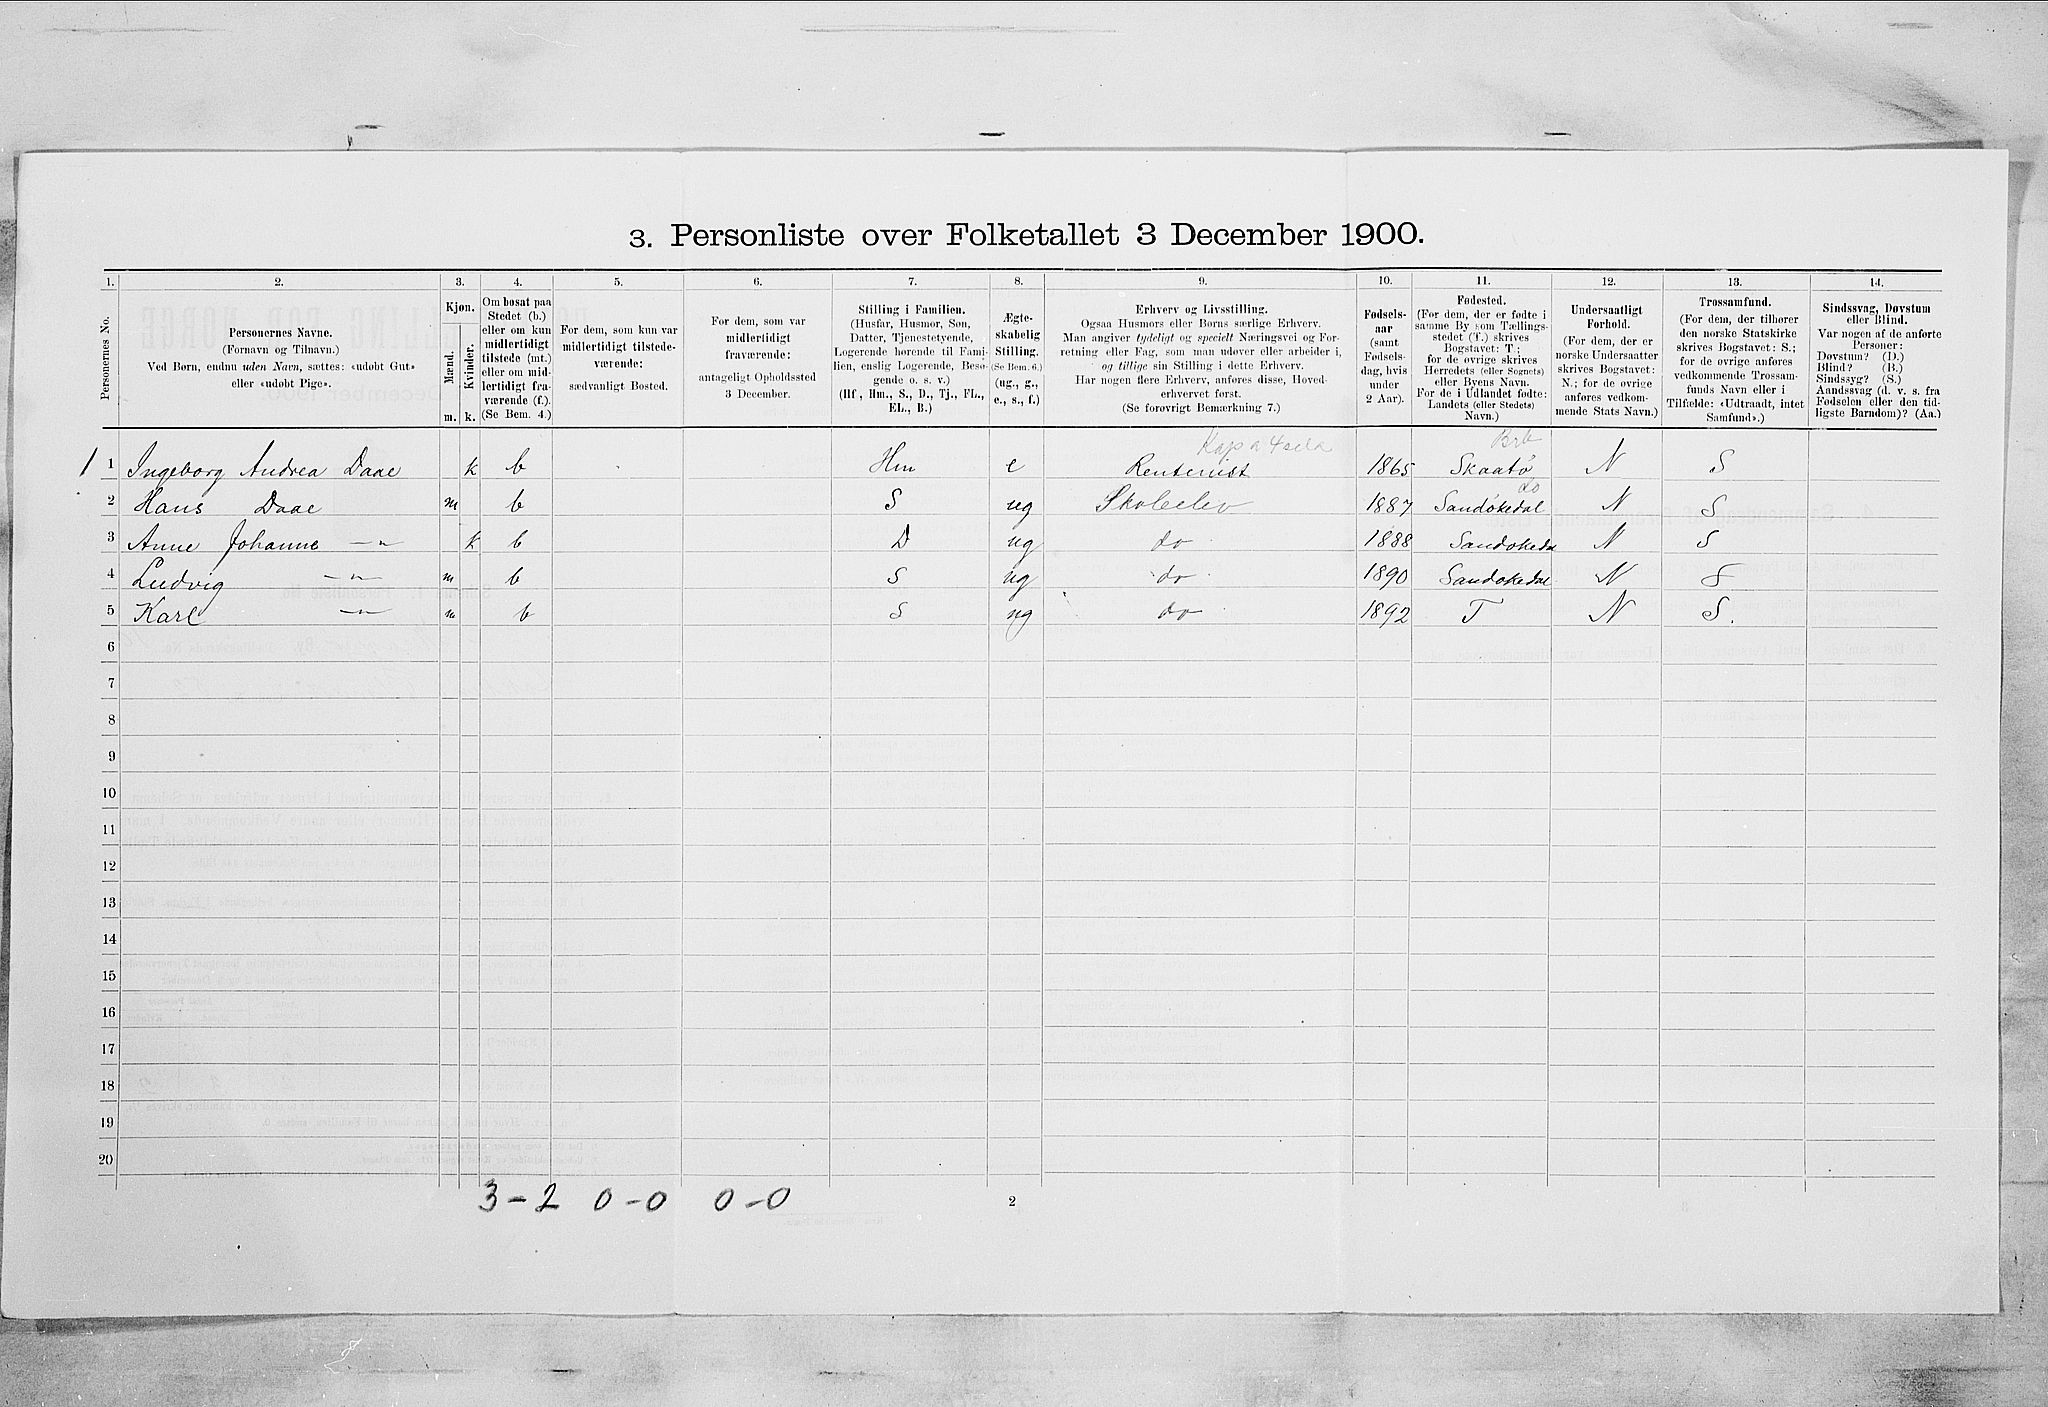 3. Personliste over Folketallet 3 December 1900.
1. 2. 3. 4. 5. 6. 7. 8. 9. 10. 11. 12. 13. 14.
Personernes No.
Personernes Navne.
(Fornavn og Tilnavn.)
Ved Børn, endnu uden Navn, sættes: «udøbt Gut»
eller «udøbt Pige».
Kjøn.
Mænd.
Kvinder.
m. k.
Om bosat paa
Stedet (b.)
eller om kun
midlertidigt
tilstede (mt.)
eller om mid-
lertidigt fra-
værende (f.).
(Se Bem. 4.)
For dem, som kun var
midlertidigt tilstede-
værende:
sædvanligt Bosted.
For dem, som var
midlertidigt
fraværende:
antageligt Opholdssted
3 December.
Stilling i Familien.
(Husfar, Husmor, Søn,
Datter, Tjenestetyende,
Logerende hørende til Fami-
lien, enslig Logerende, Besø-
gende o. s. v.)
(Hf, Hm., S., D., Tj., FL.,
EL., B.)
Ægte-
skabelig
Stilling.
(Se Bem. 6.)
(ug., g.,
e., s., f.)
Erhverv og Livsstilling.
Ogsaa Husmors eller Børns særlige Erhverv.
Man angiver tydeligt og specielt Næringsvei og For-
retning eller Fag, som man udøver eller arbeider i,
og tillige sin Stilling i dette Erhverv.
Har nogen flere Erhverv, anføres disse, Hoved-
erhvervet først.
(Se forøvrigt Bemærkning 7.)
Fødsels-
aar
(samt
Fødsels-
dag, hvis
under
2 Aar).
Fødested.
(For dem, der er fødte i
samme By som Tællings-
stedet (f.) skrives
Bogstavet: T;
for de øvrige skrives
Herredets (eller Sognets)
eller Byens Navn.
For de i Udlandet fødte:
Landets (eller Stedets)
Navn.)
Undersaatligt
Forhold.
(For dem, der er
norske Undersaatter
skrives Bogstavet:
N.; for de øvrige
anføres vedkom-
mende Stats Navn.)
Trossamfund.
(For dem, der tilhører
den norske Statskirke
skrives Bogstavet: S.;
for de øvrige anføres
vedkommende Trossam-
funds Navn eller i
Tilfælde: «Udtraadt, intet
Samfund».)
Sindssvag, Døvstum
eller Blind.
Var nogen af de anførte
Personer:
Døvstum? (D.)
Blind? (B.)
Sindssyg? (S.)
Aandssvag (d. v. s. fra
Fødselen eller den tid-
ligste Barndom)? (Aa.)
Brb
1 1 Ingeborg Andrea Daae k b Hm e Rentenist 1865 Skaatø N S
do
2 Hans Daae m b S ug Skoleelev 1887 Sandøkedal N S
3 Anne Johanne -"- k b D ug do 1888 Sandøkedal N S
4 Ludvig -"- m b S ug do 1890 Sandøkedal N S
5 Karl -"- m b S ug do 1892 T N S.
6
7
8
9
10
11
12
13
14
15
16
17
18
19
20
3-2 0-0 0-0 2